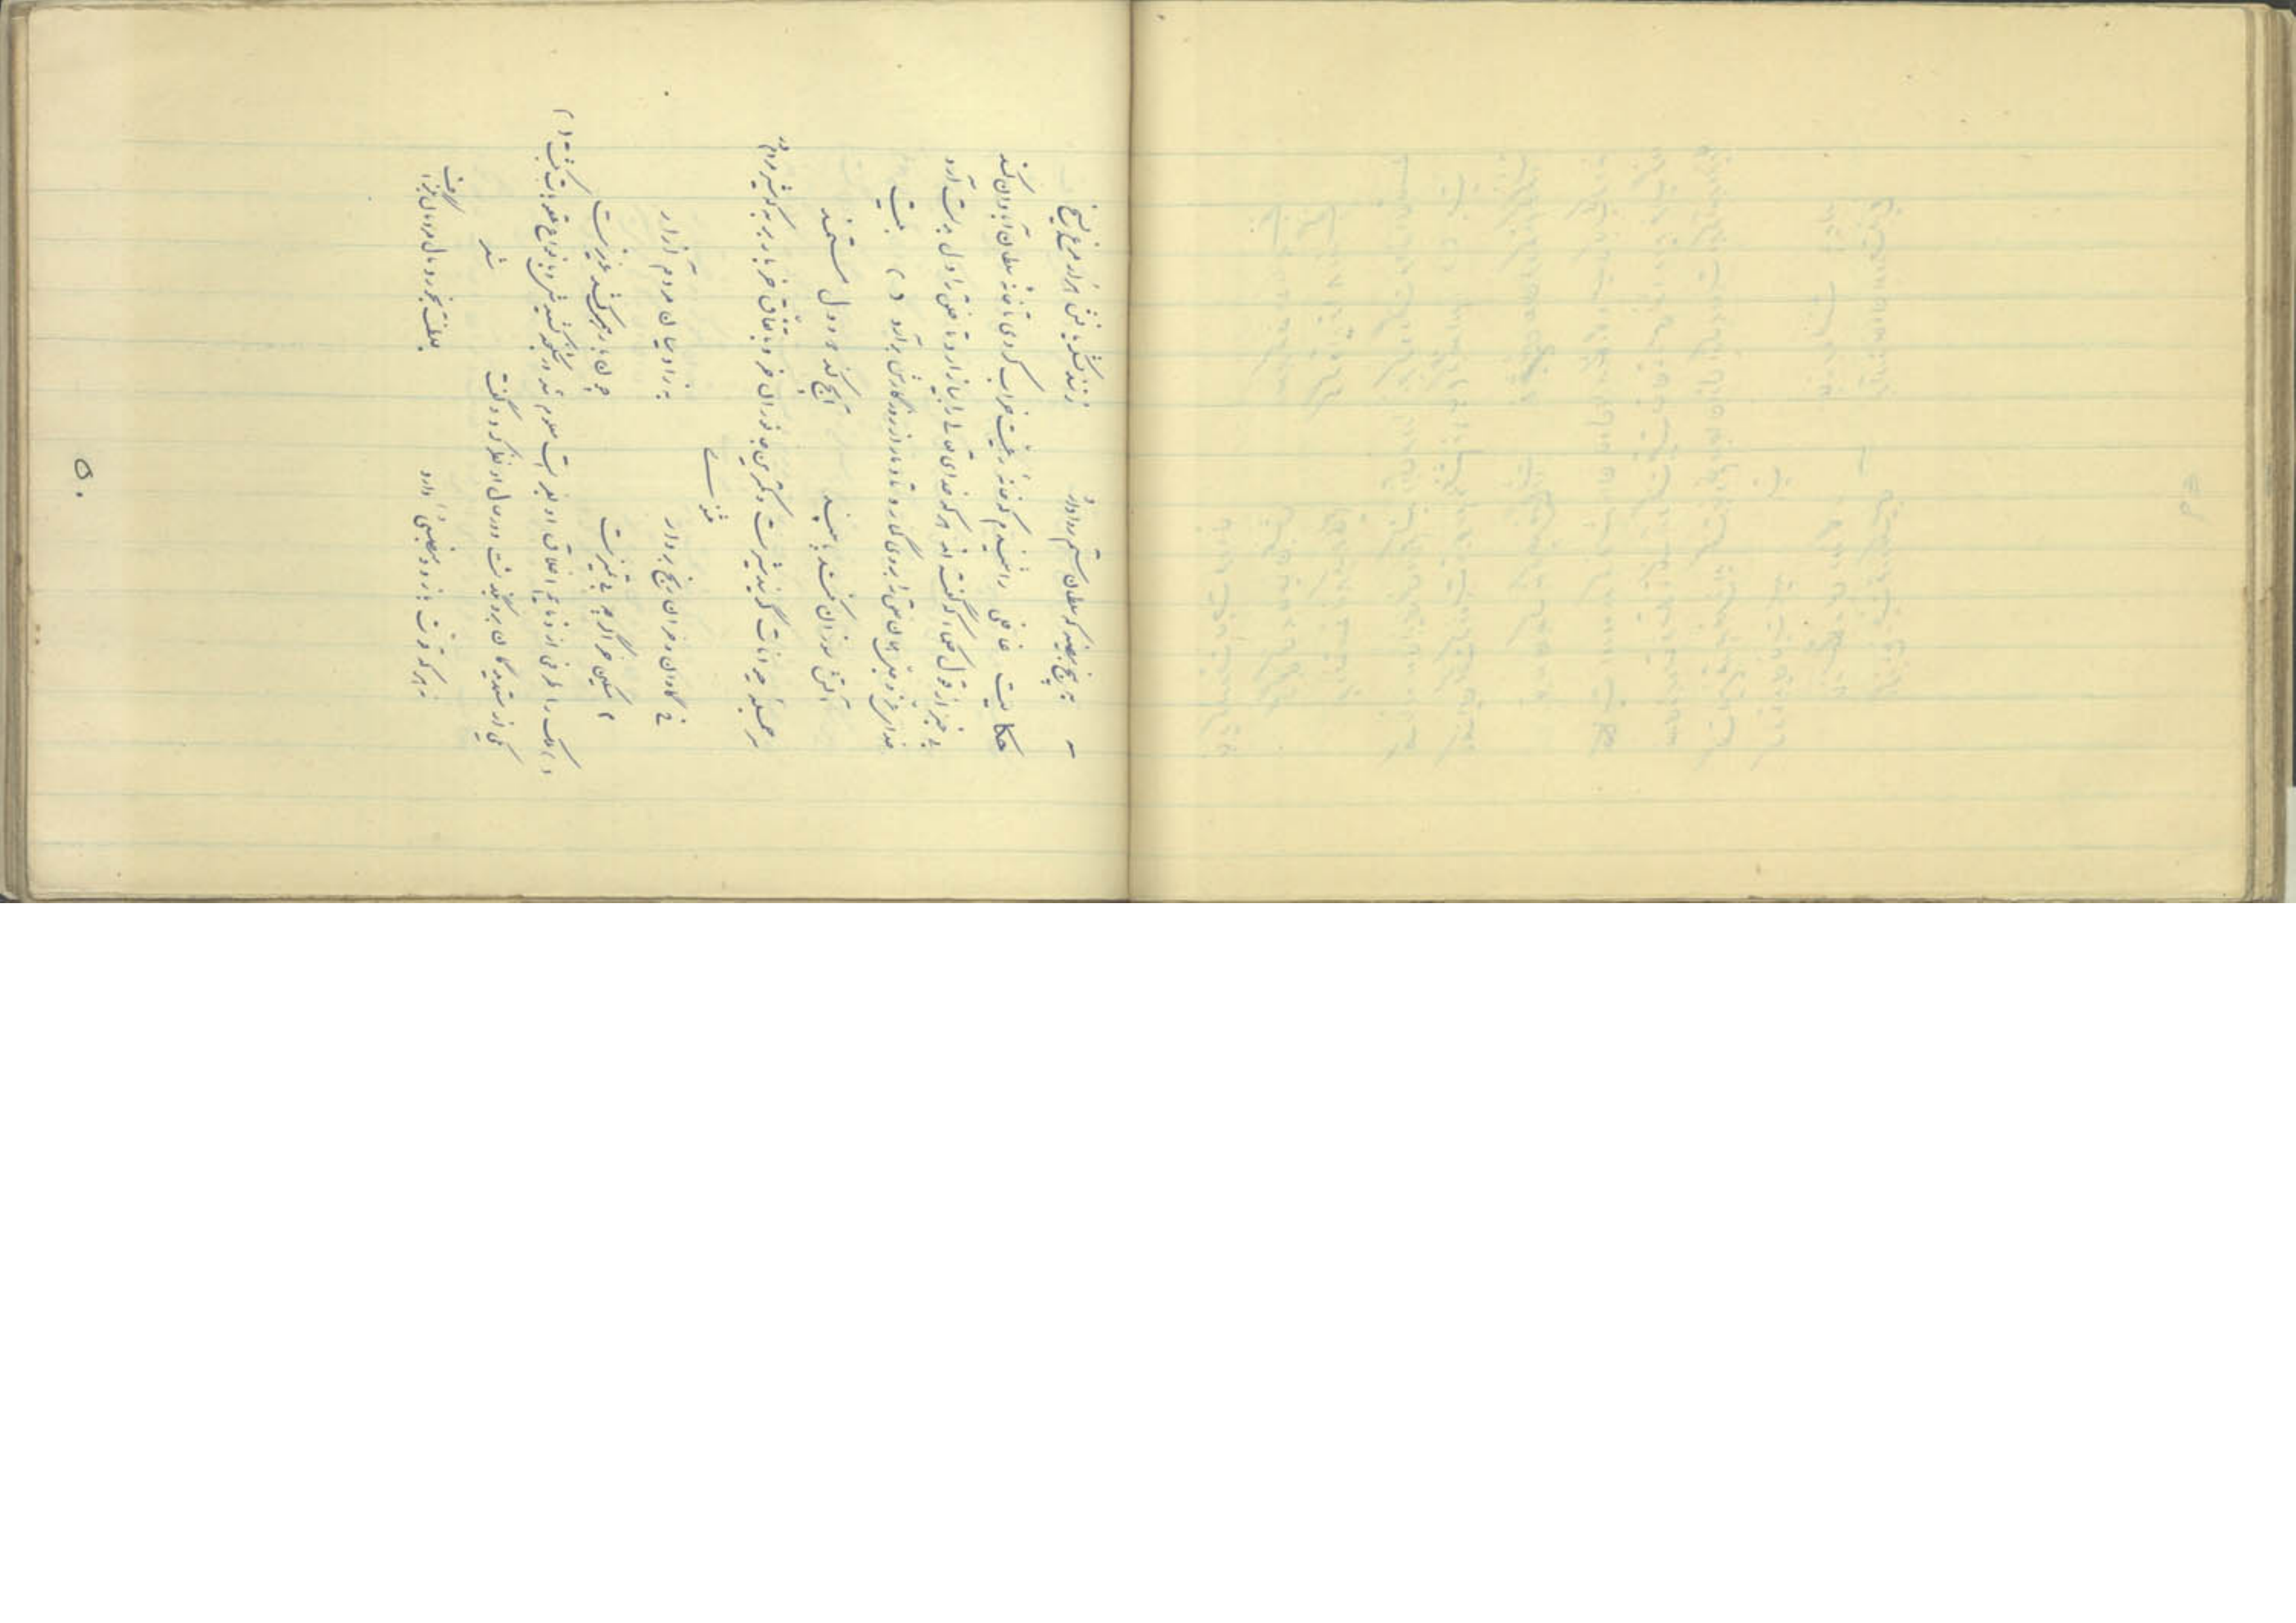 به پنج بیضه که سلطان ستم روا دارد زنند لشکریانش هزار مرغ بسیخ
حکایت غافلی را شنیدم که خانه رعیت خراب کردی تا خزانه سلطان آبادان کند
بی خبر از قول حکما که گفته اند هر که خدای تعالی را بیازارد تا خلق را دل بدست آرد
خدای عز و جل همان خلق را بروی گمارد تا دمار از روزگارش برآرد () بیت
آتش سوزان نکند با سپند آنچه کند دود دل مستمند
سر جمله حیوانات گویند شیرست و کمترین جانوران خر و باتفاق خر باربر به که شیر مردم در
مثنوی
مسکین خر اگرچه بی تمیزست چون بار همی کشد عزیزست
گاوان و خران رنج بردار به ز ادمیان مردم آزار
ملک را طرفی از ذمایم اخلاق او بقراین معلوم شد در شکنجه کشیدش و بانواع عقوبت بکشت ()
یکی از ستمدیدگان برو بگذشت و در حال او نظر کرد و گفت شعر
نه هر که قوت بازو و منصبی دارد بسلطنت بخورد مال مردمان بگزاف
۵۰